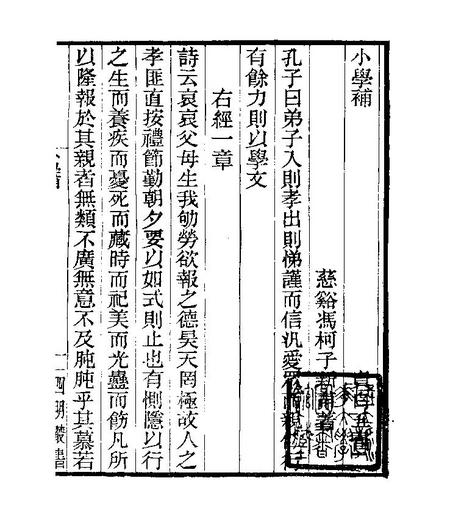 小學補
慈谿馮柯子新甫著
孔子曰弟子入則孝出則悌謹而信汎愛眾而親仁行
有餘力則以學文
右經一章
詩云哀哀父母生我劬勞欲報之德昊天罔極故人之
孝匪直按禮節勤朝夕要以如式則止也有惻隱以行
之生而養疾而憂死而藏時而祀美而光蠱而飭凡所
以隆報於其親者無類不廣無意不及肫肫乎其慕若
四明叢書